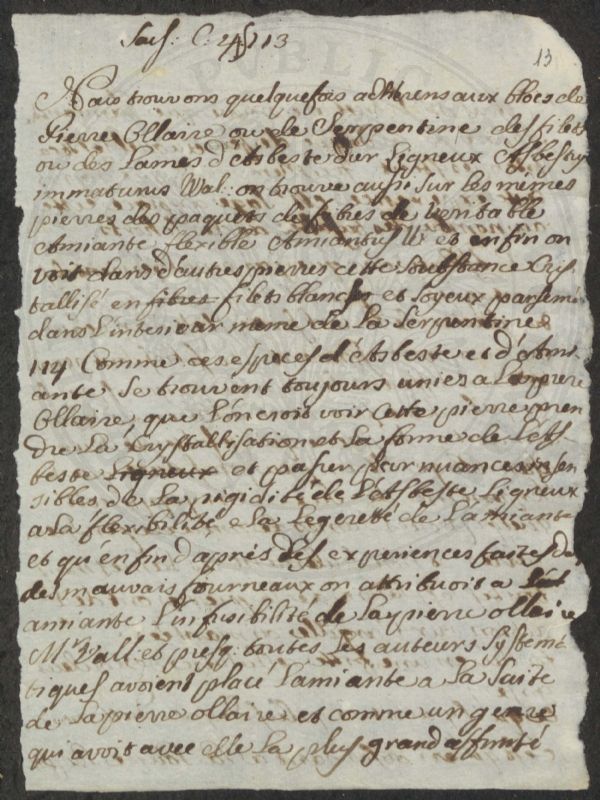 13
Nous trouvons quelquefois adhérens aux blocs de
Pierre Ollaire ou de Serpentine des filets
ou des Lames d'Asbeste dur Ligneux Asbestus
immaturus Wal: on trouve aussi sur les mêmes
pierres des paquets de fibres de veritable
Amiante flexible Amiantus W. et enfin on
voit dans d'autres pierres cette substance Cris
tallisé en fibres filets blancs et soyeux parsemé
dans l'interieur meme de la Serpentine
114 Comme ces especes d'Asbeste et d'Ami
ante se trouvent toujours unies a la pierre
Ollaire, que l'on croit voir cette pierre pren
dre la Crystallisation et la forme de l'As
beste Ligneux et passer par nuances insen
sibles de la rigidité de l'Asbeste Ligneux
a la flexibilité e la Legereté de l'amiante
et qu'enfin d'après des experiences faites
des mauvais fourneaux on attribuoit a
amiante l'infusibilité de la pierre ollaire
Mr Vall et presq. toutes les auteurs Systema
tiques avoient placé l'amiante a la suite
de la pierre ollaire et comme un genre
qui avoit avec elle la plus grand affinité